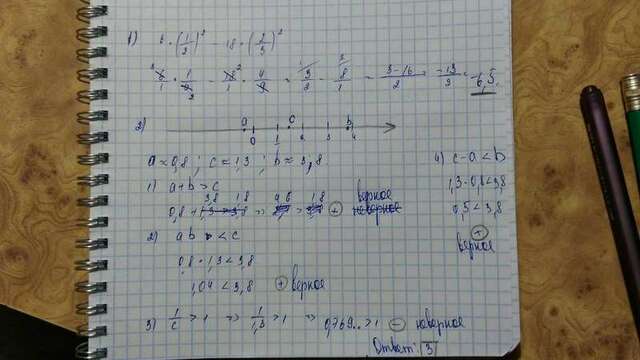 1) 6 · (1/2)² − 18 · (2/3)²
6/1 · 1/4 − 18/1 · 4/9 = 3/2 − 8/1 = 3−16/2 = −13/2 = −6,5.
2)
a 0 1 c 2 3 b 4
a ≈ 0,8 ; c ≈ 1,3 ; b ≈ 3,8
1) a+b > c
0,8 + 3,8 > 1,8 => 4,6 > 1,8 ⊕ верное
2) ab < c
0,8 · 1,3 < 3,8
1,04 < 3,8 ⊕ верное
3) 1/c > 1 => 1/1,3 > 1 => 0,769.. > 1 ⊖ неверное
4) c − a < b
1,3 − 0,8 < 3,8
0,5 < 3,8
⊕
верное
Ответ: 3